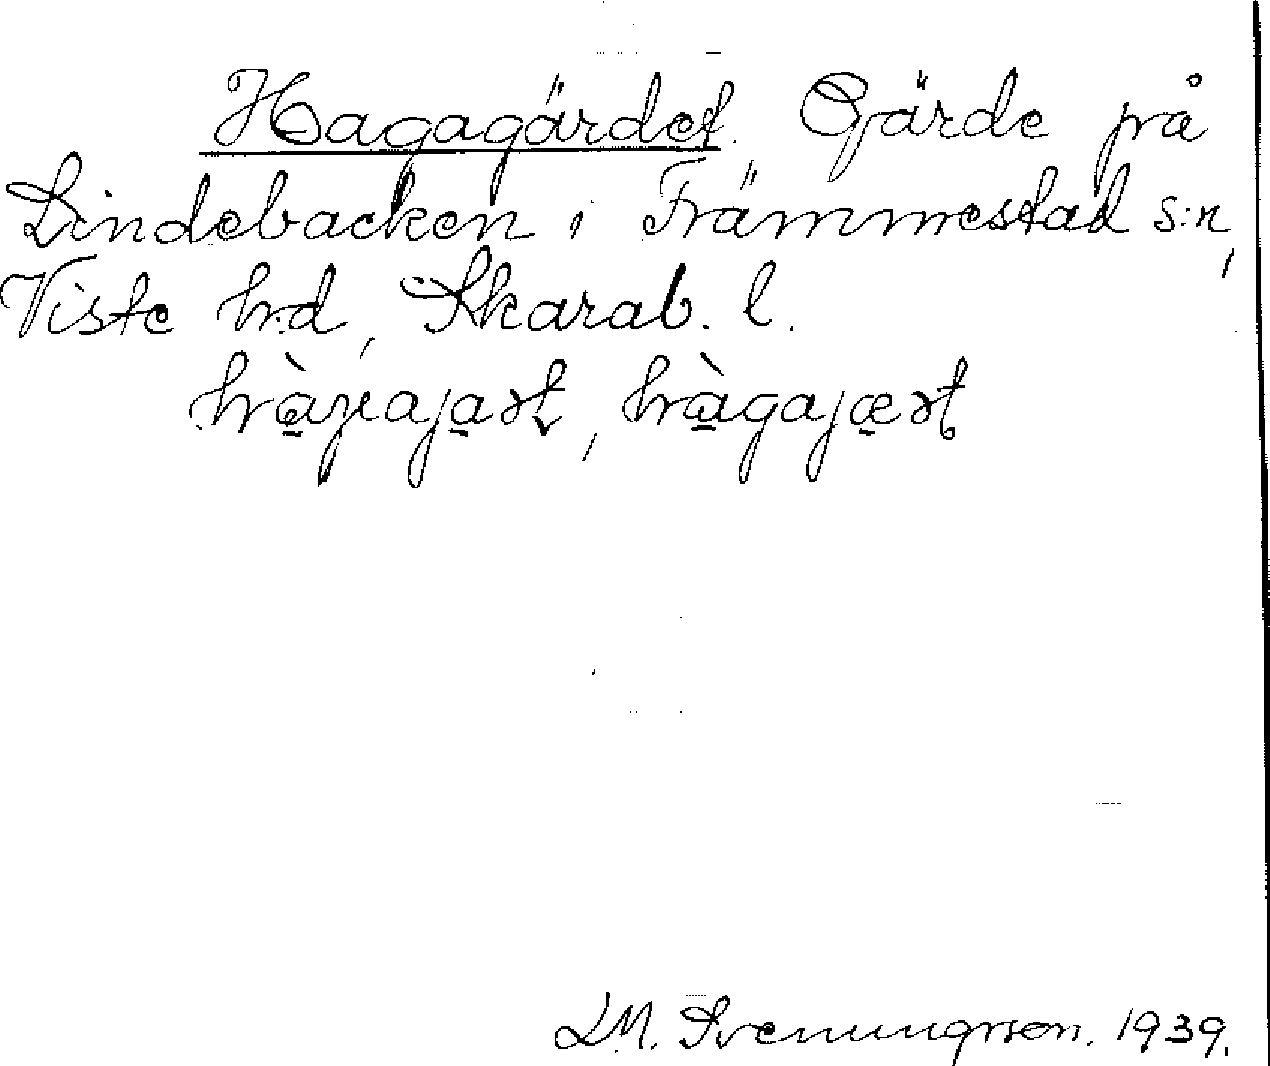 Hagagärdet. Gärde på
Lindebacken i Främmestad s:n,
Viste h:d, Skarab. l.
hàgajært
L.M. Svenungsson. 1939.